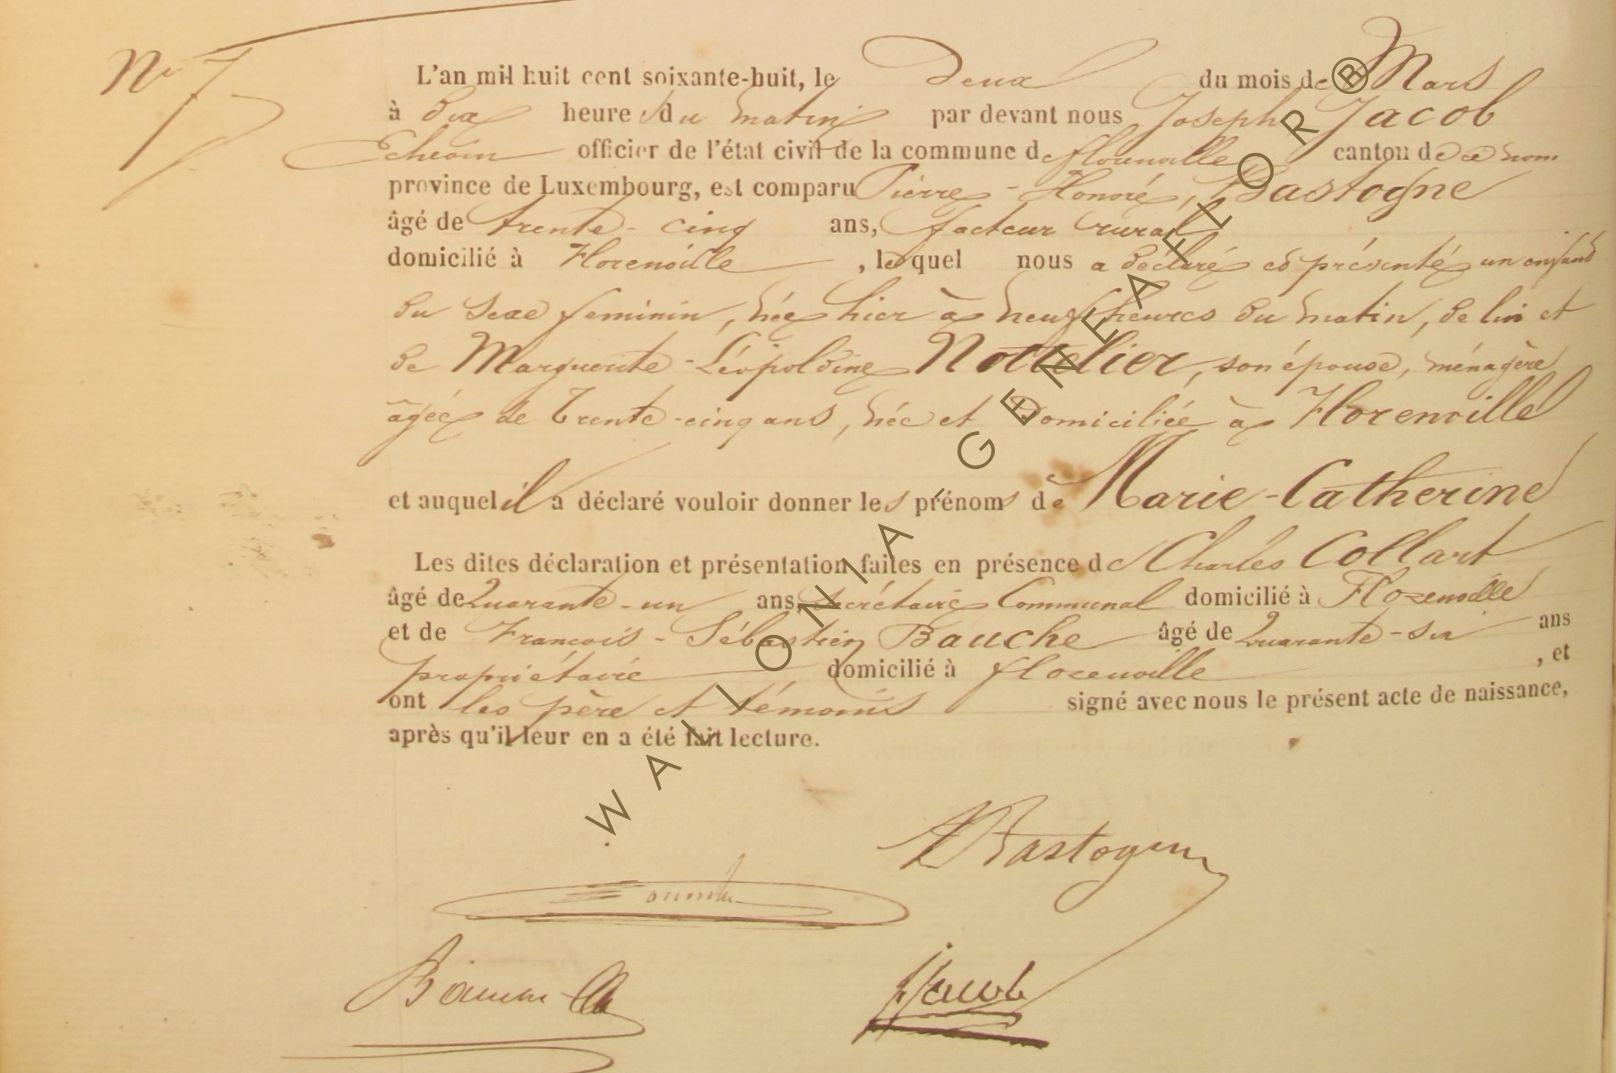 N° 7
L'an mil huit cent soixante-huit, le Deux du mois de Mars
à Dix heures du matin par devant nous Joseph Jacob
Echevin officier de l'état civil de la commune de florenville canton de ce nom
province de Luxembourg, est comparu Pierre-Honoré, Bastogne
âgé de trente-cinq ans, facteur rural
domicilié à Florenville, lequel nous a déclaré et présenté un enfant
du sexe feminin, née hier à neuf heures du matin, de lui et
de Marguerite-Léopoldine Nottelier, son épouse, ménagère
âgée de Trente-cinq ans, née et Domiciliée à Florenville
et auquel il a déclaré vouloir donner les prénoms de Marie-Catherine
Les dites déclaration et présentation faites en présence de Charles Collart
âgé de Quarante-un ans, secrétaire Communal domicilié à Florenville
et de François-Sébastien Bauche âgé de Quarante-six ans
propriétaire domicilié à florenville, et
ont les père et témoins signé avec nous le présent acte de naissance,
après qu'il leur en a été fait lecture.
Bastogne
Jacob
WALLONIA-GENEAFLOR®